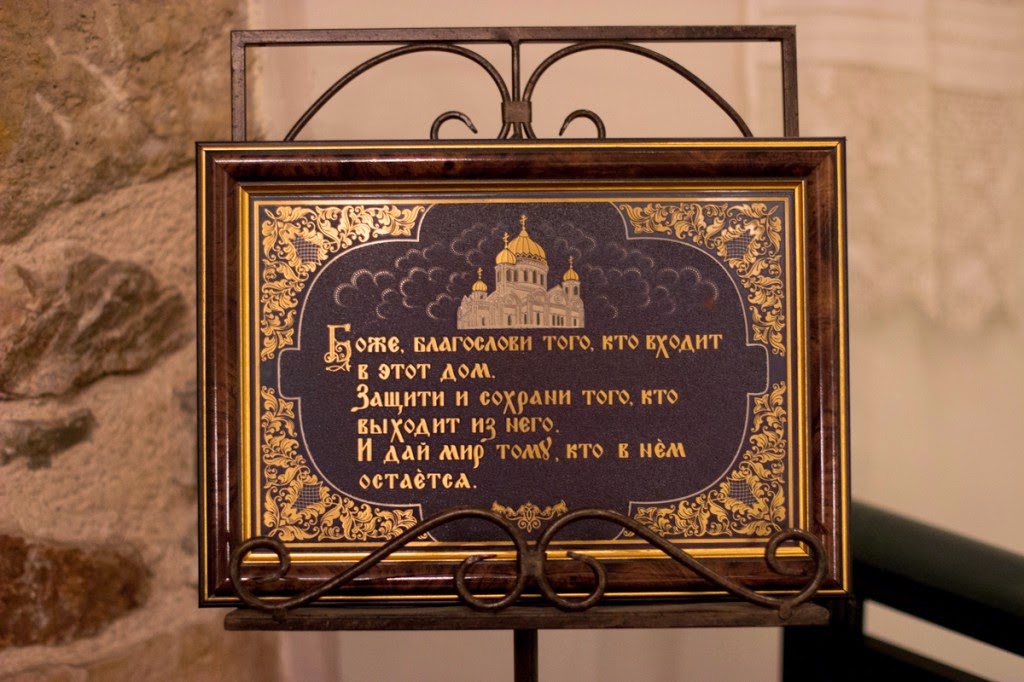 Боже, благослови того, кто входит
в этот дом.
Защити и сохрани того, кто
выходит из него.
И дай мир тому, кто в нѐм
остаѐтся.